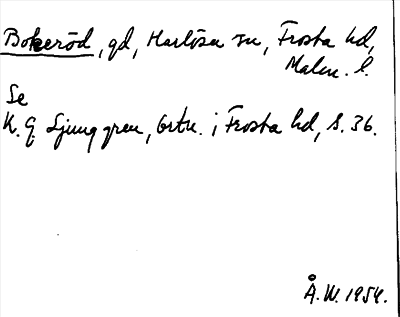 Bokeröd, gd, Harlösa sn, Frosta hd,
Malm. l.
Se
K. G. Ljunggren, Ortn. i Frosta hd, s. 36.
Å. W. 1954.